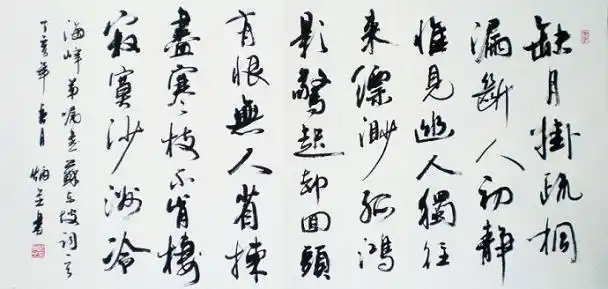 缺月掛疏桐
漏斷人初靜
惟見幽人獨往
來縹渺孤鴻
影驚起却回頭
有恨無人省揀
盡寒枝不肯棲
寂寞沙洲冷
海峰弟囑書蘇東坡詞
丁亥年春月炳書